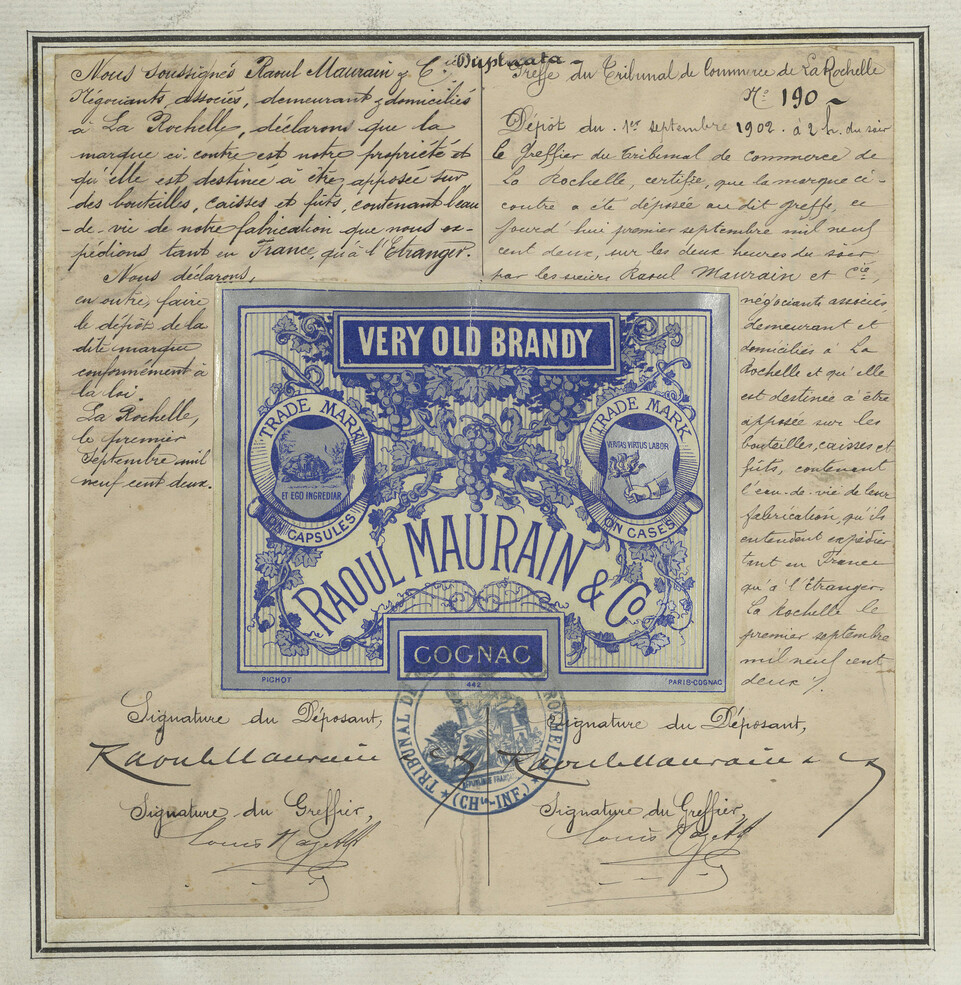 Duplicata
Nous soussignés Raoul Maurain & Cie
Négociants, associés, demeurant & domiciliés
à La Rochelle, déclarons que la
marque ci-contre est notre propriété et
qu'elle est destinée à être apposée sur
des bouteilles, caisses et fûts, contenant l'eau
-de-vie de notre fabrication que nous ex-
pédions tant en France, qu'à l'Etranger.
Nous déclarons,
en outre, faire
le dépôt de la
dite marque
conformément à
la loi.
La Rochelle,
le premier
Septembre mil
neuf cent deux.
Greffe du Tribunal de Commerce de La Rochelle
No 190
Dépôt du 1er septembre 1902 à 2 h. du soir
Le Greffier du Tribunal de Commerce de
La Rochelle, certifie, que la marque ci-
contre a été déposée au dit greffe, ce
jourd'hui premier septembre mil neuf
cent deux, sur les deux heures du soir
par les sieurs Raoul Maurain et Cie,
négociants associés
demeurant et
domiciliés à La
Rochelle et qu'elle
est destinée à être
apposée sur les
bouteilles, caisses et
fûts, contenant
l'eau-de-vie de leur
fabrication, qu'ils
entendent expédier
tant en France
qu'à l'Etranger.
La Rochelle le
premier septembre
mil neuf cent
deux
VERY OLD BRANDY
TRADE MARK
ET EGO INGREDIAR
ON CAPSULES
TRADE MARK
VERITAS VIRTUS LABOR
ON CASES
RAOUL MAURAIN & Co
COGNAC
PICHOT
442
PARIS-COGNAC
TRIBUNAL DE ROCHELLE
REPUBLIQUE FRANÇAISE
(CHte-INF.)
Signature du Déposant,
Raoul Maurain & Cie
Signature du Greffier,
Signature du Déposant,
Raoul Maurain & Cie
Signature du Greffier,